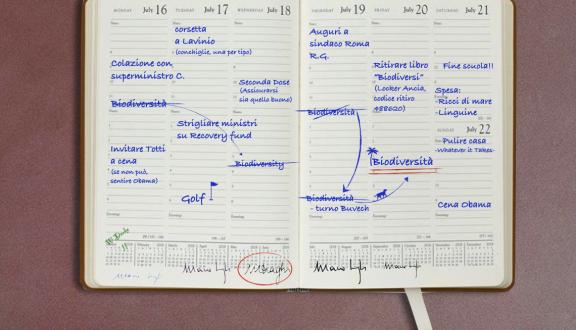 MONDAY July 16
Colazione con
superministro C.
Biodiversità
Invitare Totti
a cena
(se non può,
sentire Obama)
TUESDAY July 17
corsetta
a Lavinio
(conchiglie, una per tipo)
Strigliare ministri
su Recovery fund
Golf
WEDNESDAY July 18
Seconda Dose
(Assicurarsi
sia quello buono)
Biodiversity
THURSDAY July 19
Auguri a
sindaco Roma
R.G.
Biodiversità
Biodiversità
- turno Buvech
FRIDAY July 20
Ritirare libro
"Biodiversi"
(Locker Ancia,
codice ritiro
488620)
Biodiversità
SATURDAY July 21
Fine scuola!!
Spesa:
-Ricci di mare
-Linguine
SUNDAY July 22
-Pulire casa
-Whatever it Takes-
Cena Obama